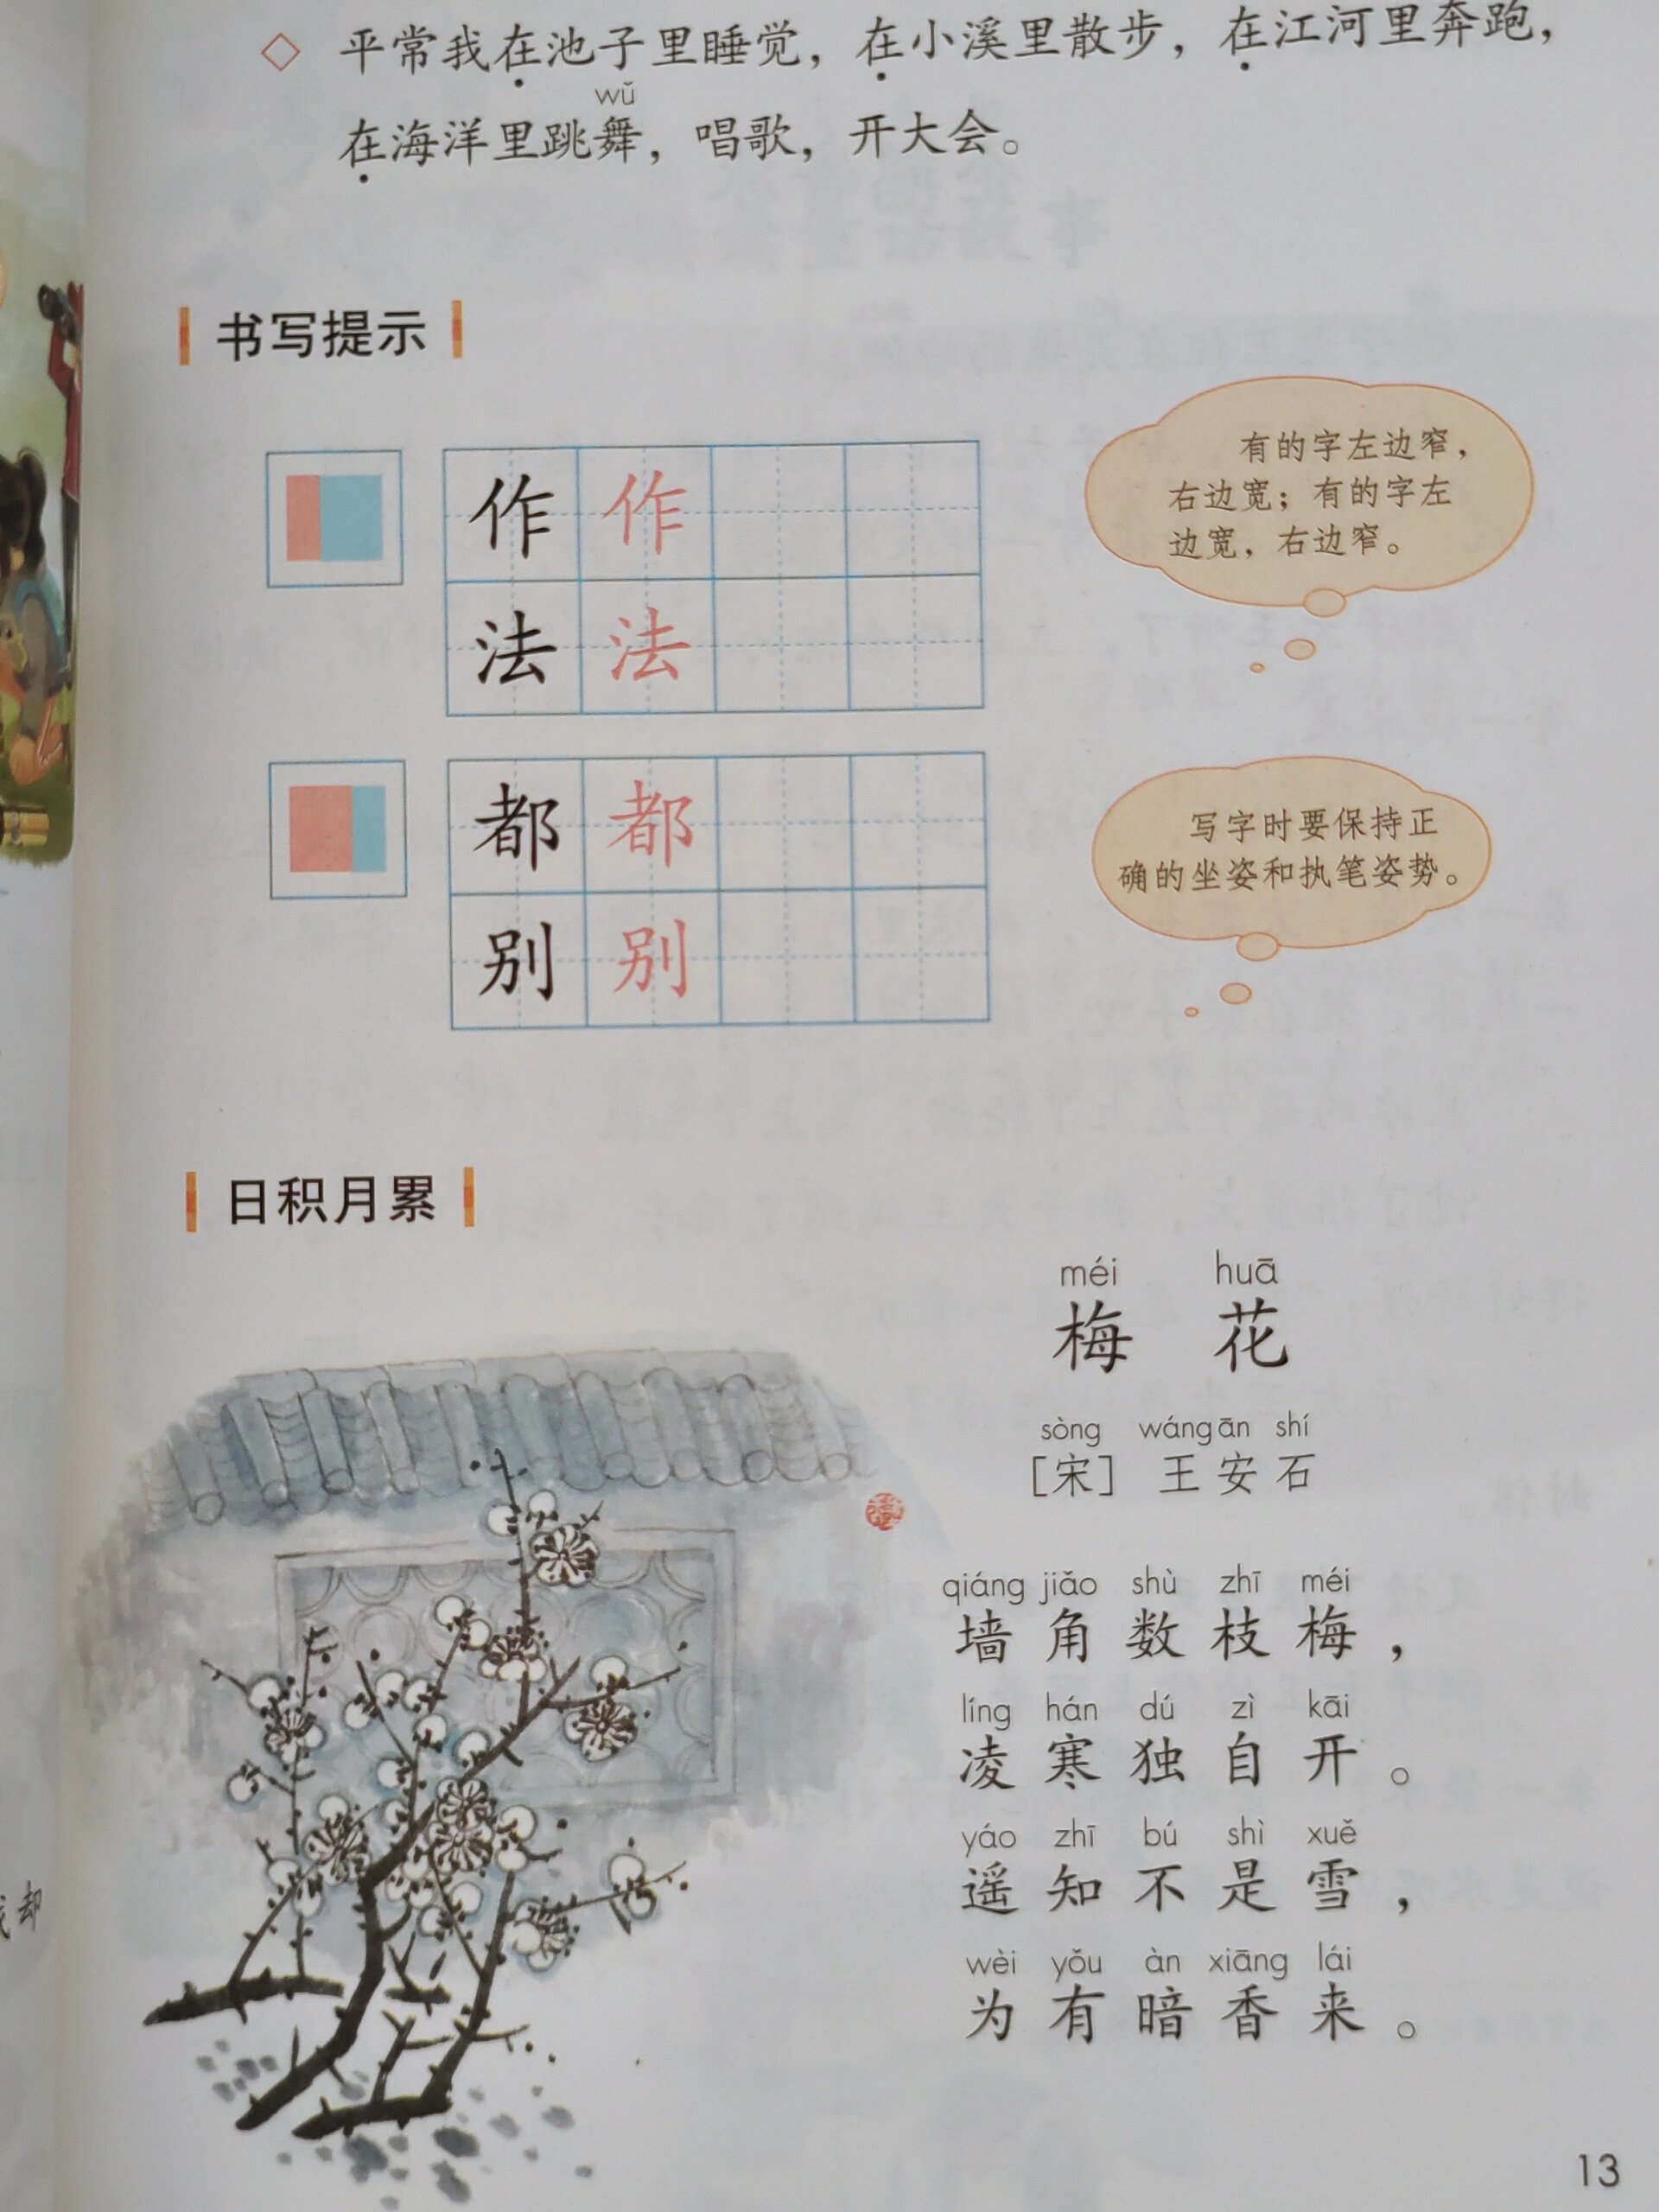 ◇ 平常我在池子里睡觉，在小溪里散步，在江河里奔跑，
wǔ
在海洋里跳舞，唱歌，开大会。
书写提示
有的字左边窄，
右边宽；有的字左
边宽，右边窄。
作 作
法 法
写字时要保持正
确的坐姿和执笔姿势。
都 都
别 别
日积月累
méi huā
梅 花
sòng wáng ān shí
［宋］ 王安石
qiáng jiǎo shù zhī méi
墙角数枝梅，
líng hán dú zì kāi
凌寒独自开。
yáo zhī bú shì xuě
遥知不是雪，
wèi yǒu àn xiāng lái
为有暗香来。
却
13